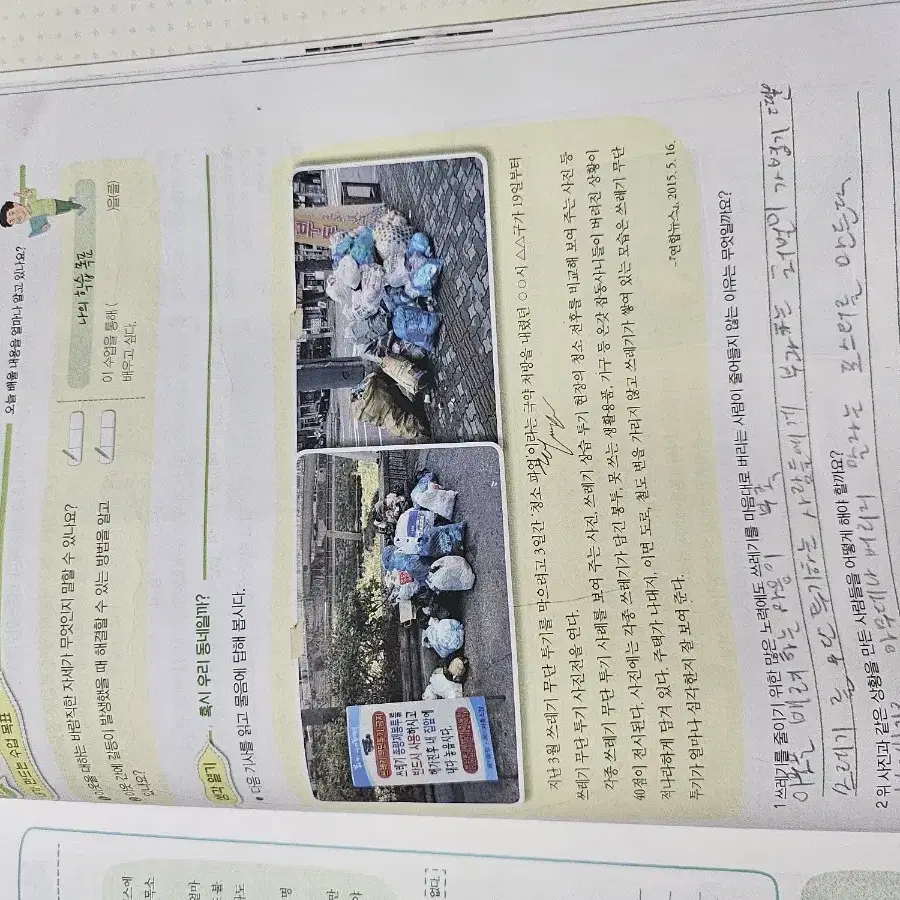 만드는 수업 목표
오늘 배울 내용을 얼마나 알고 있나요?
이웃을 대하는 바람직한 자세가 무엇인지 말할 수 있나요?
이웃 간에 갈등이 발생했을 때 해결할 수 있는 방법을 알고
있나요?
나의 학습 목표
이 수업을 통해 ( )을(를)
배우고 싶다.
생각 열기
혹시 우리 동네일까?
다음 기사를 읽고 물음에 답해 봅시다.
쓰레기 종량제봉투를
반드시 사용하시고
해가진후 내 집앞에
내다 놓읍시다.
지난 3월 쓰레기 무단 투기를 막으려고 3일간 '청소 파업'이라는 극약 처방을 내렸던 ○○시 △△구가 19일부터
쓰레기 무단 투기 사진전을 연다.
각종 쓰레기 무단 투기 사례를 보여 주는 사진, 쓰레기 상습 투기 현장의 청소 전후를 비교해 보여 주는 사진 등
40점이 전시된다. 사진에는 각종 쓰레기가 담긴 봉투, 못 쓰는 생활용품, 가구 등 온갖 잡동사니들이 버려진 상황이
적나라하게 담겨 있다. 주택가 나대지, 이면 도로, 철도 변을 가리지 않고 쓰레기가 쌓여 있는 모습은 쓰레기 무단
투기가 얼마나 심각한지 잘 보여 준다.
-『연합뉴스』, 2015. 5. 16.
1 쓰레기를 줄이기 위한 많은 노력에도 쓰레기를 마음대로 버리는 사람이 줄어들지 않는 이유는 무엇일까요?
배려하는 마음이 부족
쓰레기를 무단 투기하는 사람들에게 부과되는 처벌이 가볍기 때문
2 위 사진과 같은 상황을 만든 사람들을 어떻게 해야 할까요?
아무데나 버리지 말라는 포스터를 만든다.